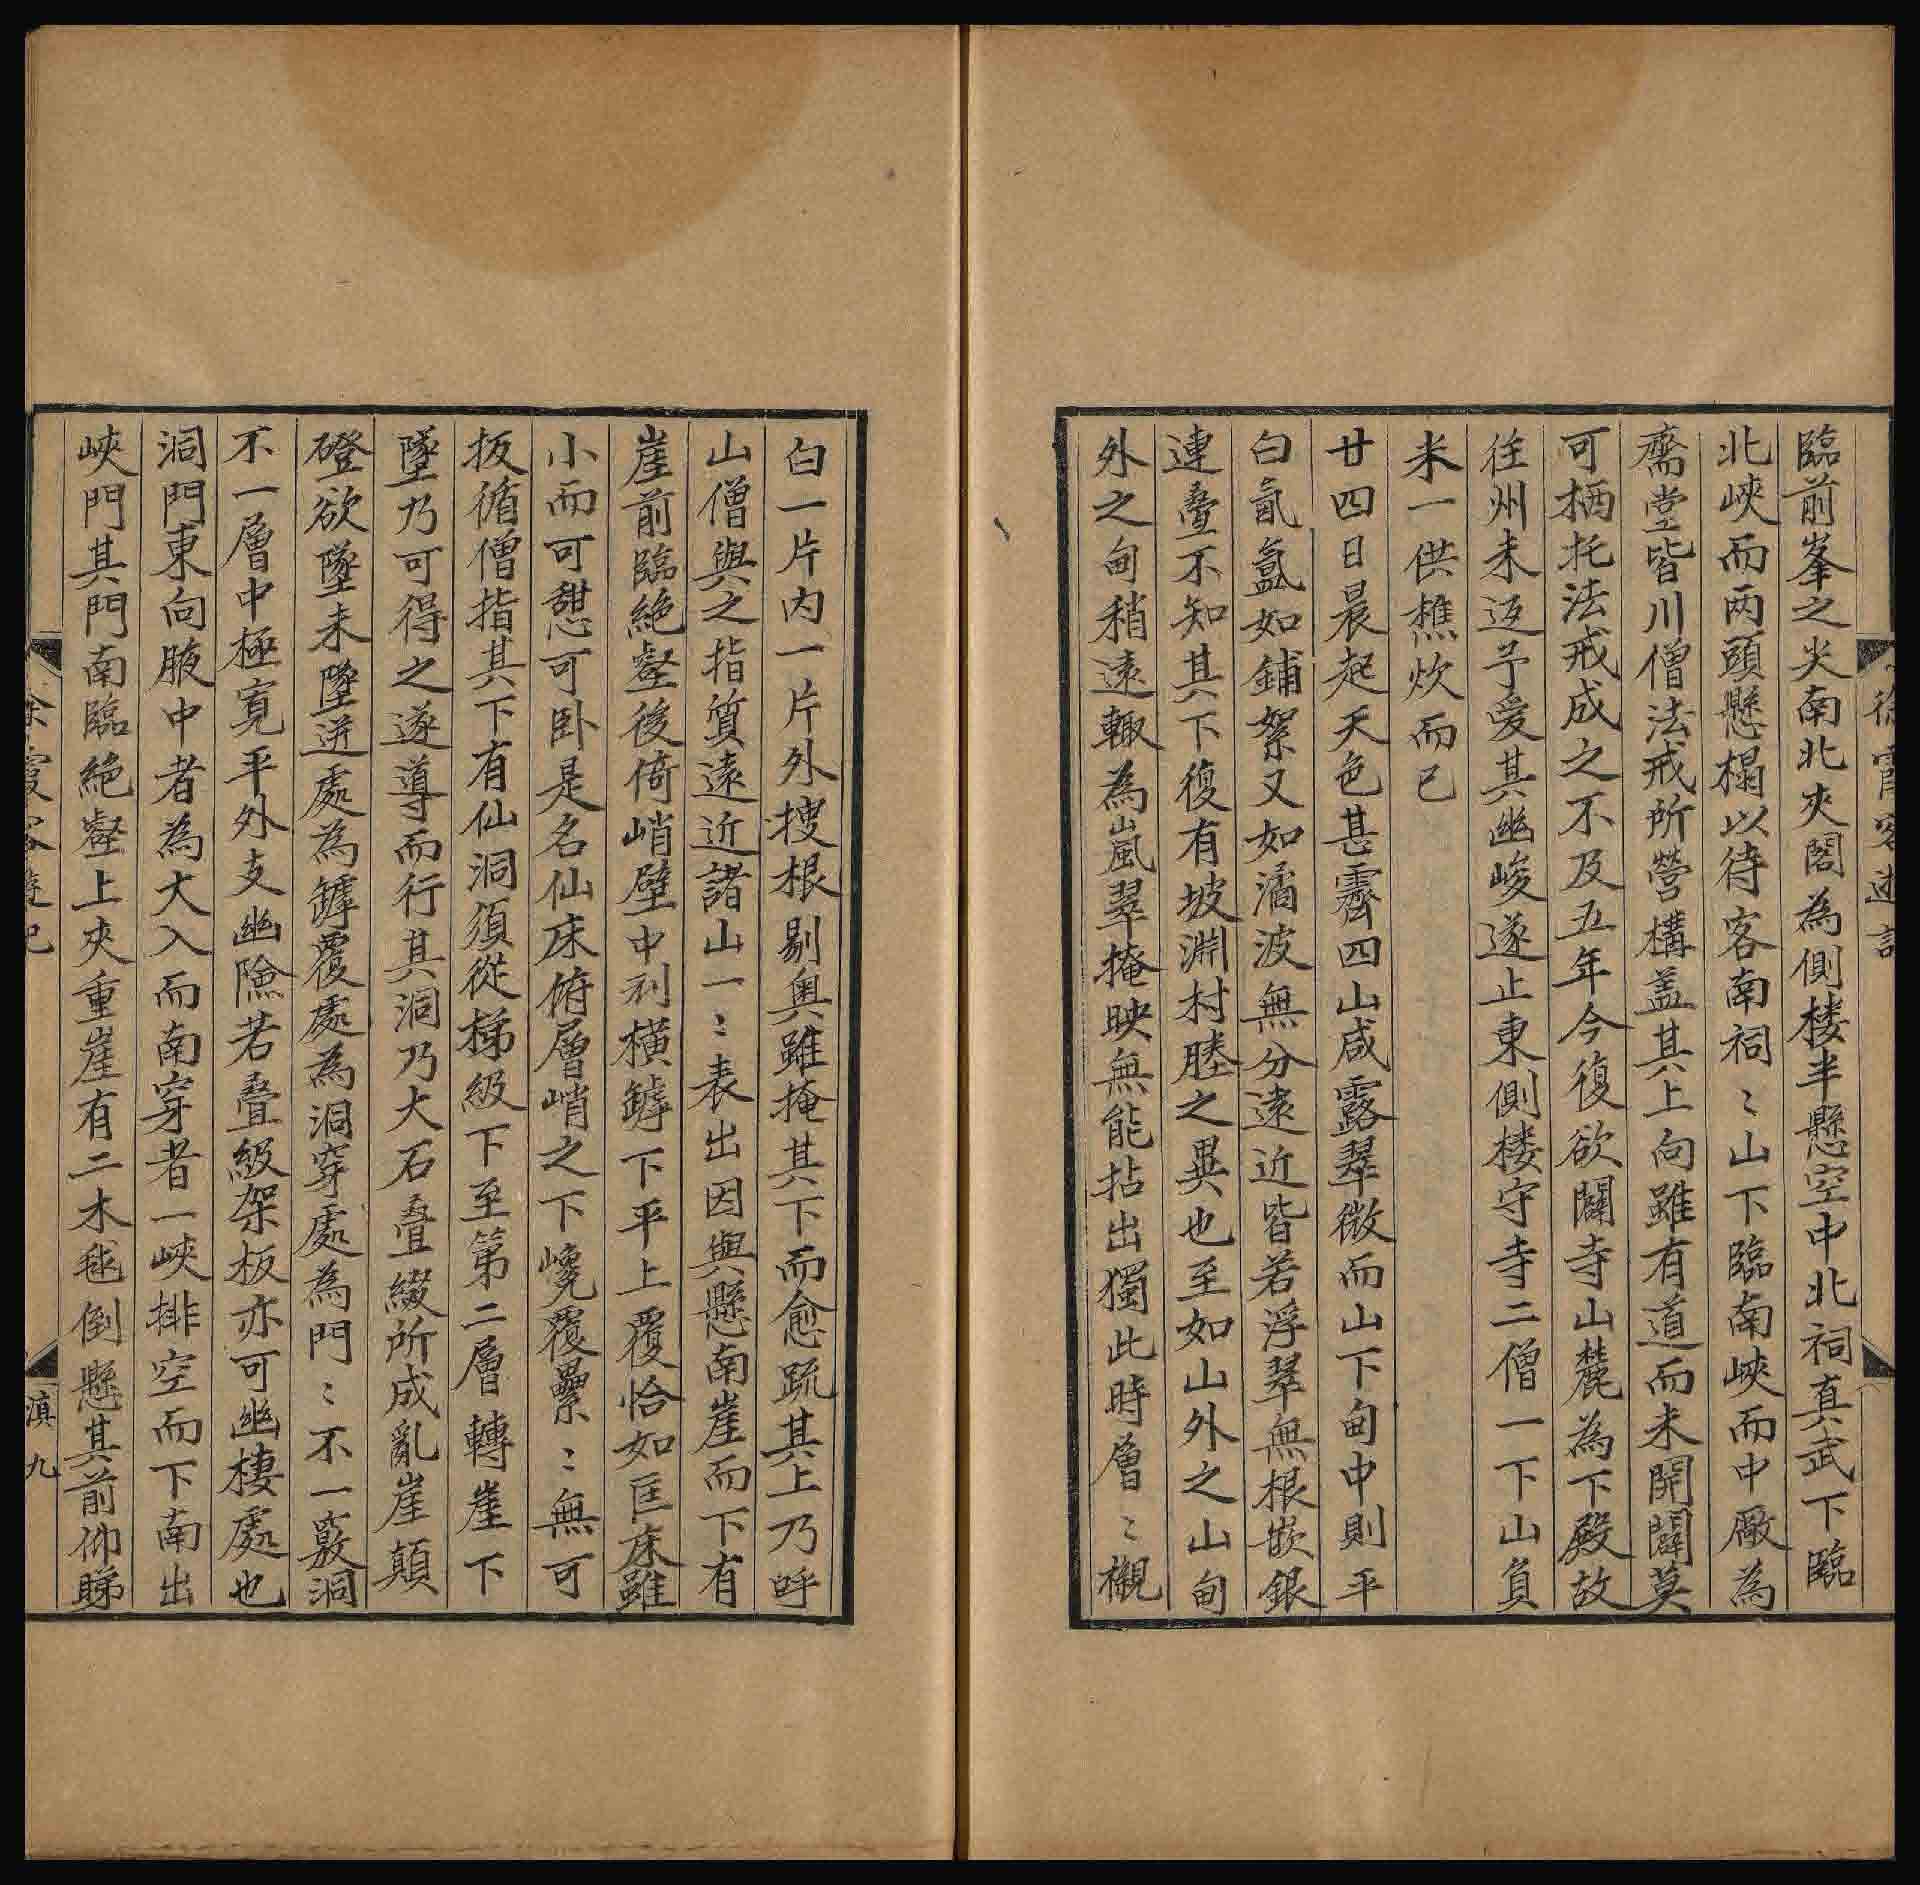 臨前峯之尖南北夾閣為側楼半懸空中北祠真武下臨
北峽而両頭懸榻以待客南祠〻山下臨南峽而中厰為
齋堂皆川僧法戒所營構盖其上向雖有道而未開闢莫
可栖托法戒成之不及五年今復欲闢寺山麓為下殿故
往州未返予愛其幽峻遂止東側楼守寺二僧一下山負
米一供樵炊而已
廿四日晨起天色甚霽四山咸露翠微而山下甸中則平
白氤氳如鋪絮又如潏波無分遠近皆若浮翠無根嵌銀
連疊不知其下復有坡淵村塍之異也至如山外之山甸
外之甸稍遠輙為嵐翠掩映無能拈出獨此時層〻襯
白一片内一片外搜根剔奧雖掩其下而愈疏其上乃呼
山僧與之指質遠近諸山一〻表出因與懸南崖而下有
崖前臨絶壑後倚峭壁中刓横罅下平上覆恰如匡床雖
小而可憇可卧是名仙床俯層峭之下巉覆纍〻無可
扳循僧指其下有仙洞須從梯級下至第二層轉崖下
墜乃可得之遂導而行其洞乃大石疊綴所成亂崖顛
磴欲墜未墜迸處為罅覆處為洞穿處為門〻不一竅洞
不一層中極寛平外支幽險若疊級架板亦可幽棲處也
洞門東向腋中者為大入而南穿者一峽排空而下南出
峽門其門南臨絶壑上夾重崖有二木毬倒懸其前仰睇
徐霞客遊記
滇九